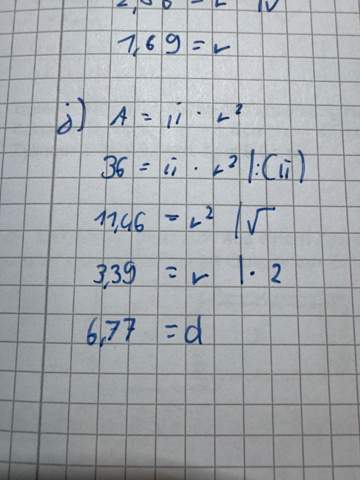 1,69 = r
j) A = π · r²
36 = π · r² |:(π)
11,46 = r² |√
3,39 = r | · 2
6,77 = d